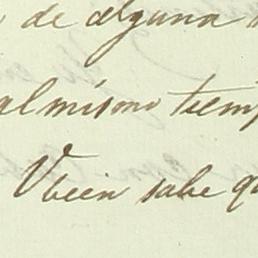 de alguna
al mismo tiem
V bien sabe qu